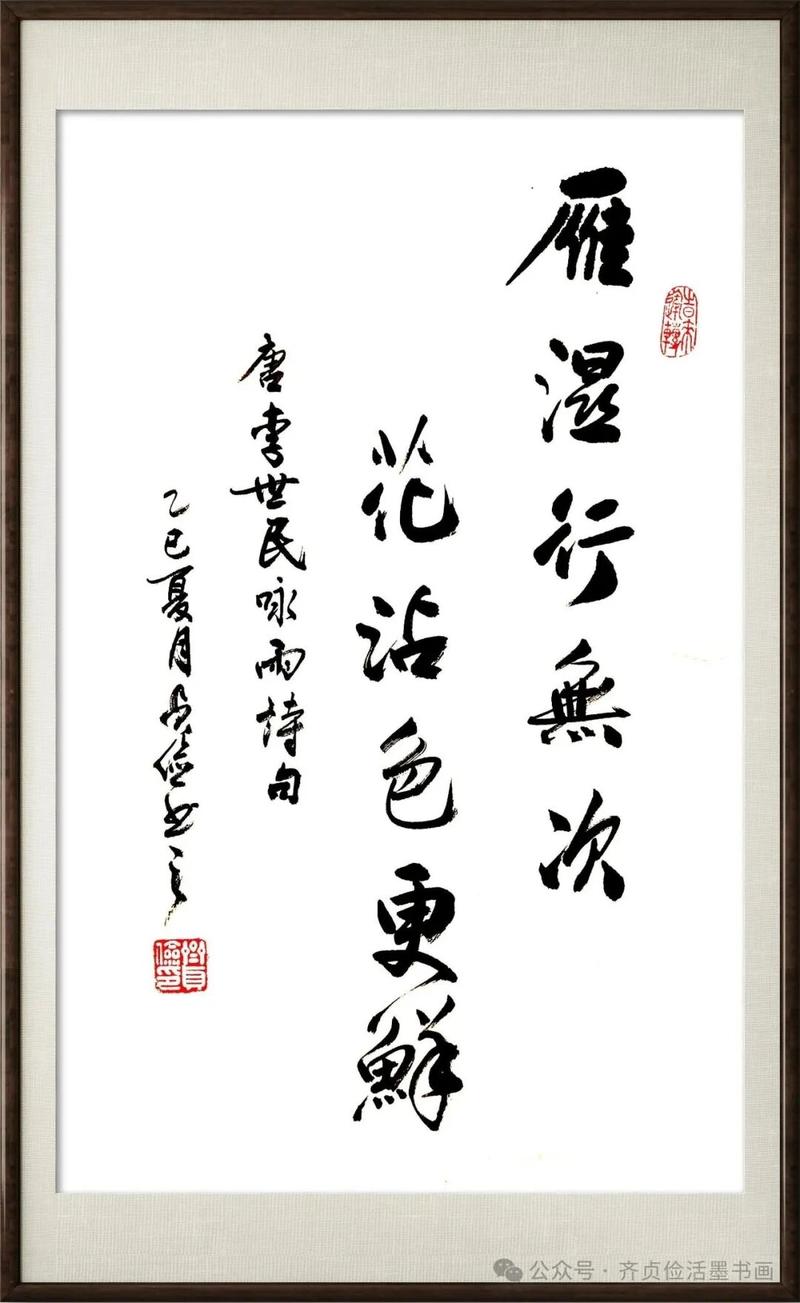 雁湿行無次
花沾色更鮮
唐李世民咏雨詩句
乙巳夏月貞儉书之
公众号·齐贞俭活墨书画